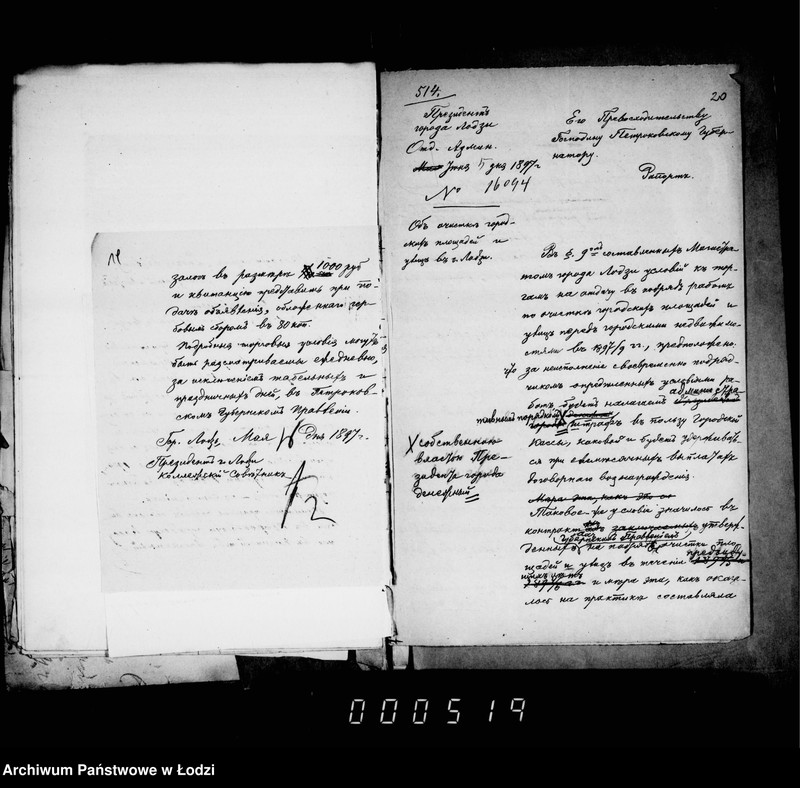 19
залог в размере 1000 руб
и квитанцию представить при по-
даче объявления, обложеннаго гер-
бовым сбором в 80 коп.
Подробныя торговыя условия могутъ
быть разсматриваемы ежедневно,
за исключением табельных и
праздничных дней, в Петроков-
ском Губернском Правлении.
Гор. Лодзь, Мая дня 1897 г.
Президент г. Лодзи
Коллежский Советник
514.
20
Президентъ
города Лодзи
Отд. Админ.
Іюня 5 дня 1897 г
№ 16094
Объ очистке город-
ских площадей и
улиц в г. Лодзи.
Его Превосходительству
Господину Петроковскому Губер-
натору.
Рапортъ.
Въ § 9 составленных Магистра-
том города Лодзи условий к тор-
гам на отдачу в подряд работ
по очистке городских площадей и
улиц перед городскими недвижимо-
стями в 1897/9 гг., предположено,
что
за неисполнение своевременно подряд-
чиком определенных условиями ра-
бот будет налагаем администра-
тивный порядком
штраф в пользу Городской
Кассы, каковой и будет удерживать-
ся при ежемесячных выплатах
договорнаго вознаграждения.
Х собственною
властью Пре-
зидента города
денежный
Мера эта, как
Таковое же условие значилось в
контракте утверж-
Губернским Правлением
денных на подряд очистки пло-
щадей и улиц в течении предыду-
щих лет
и мера эта, как оказа-
лось на практике составляла
000519
Archiwum Państwowe w Łodzi